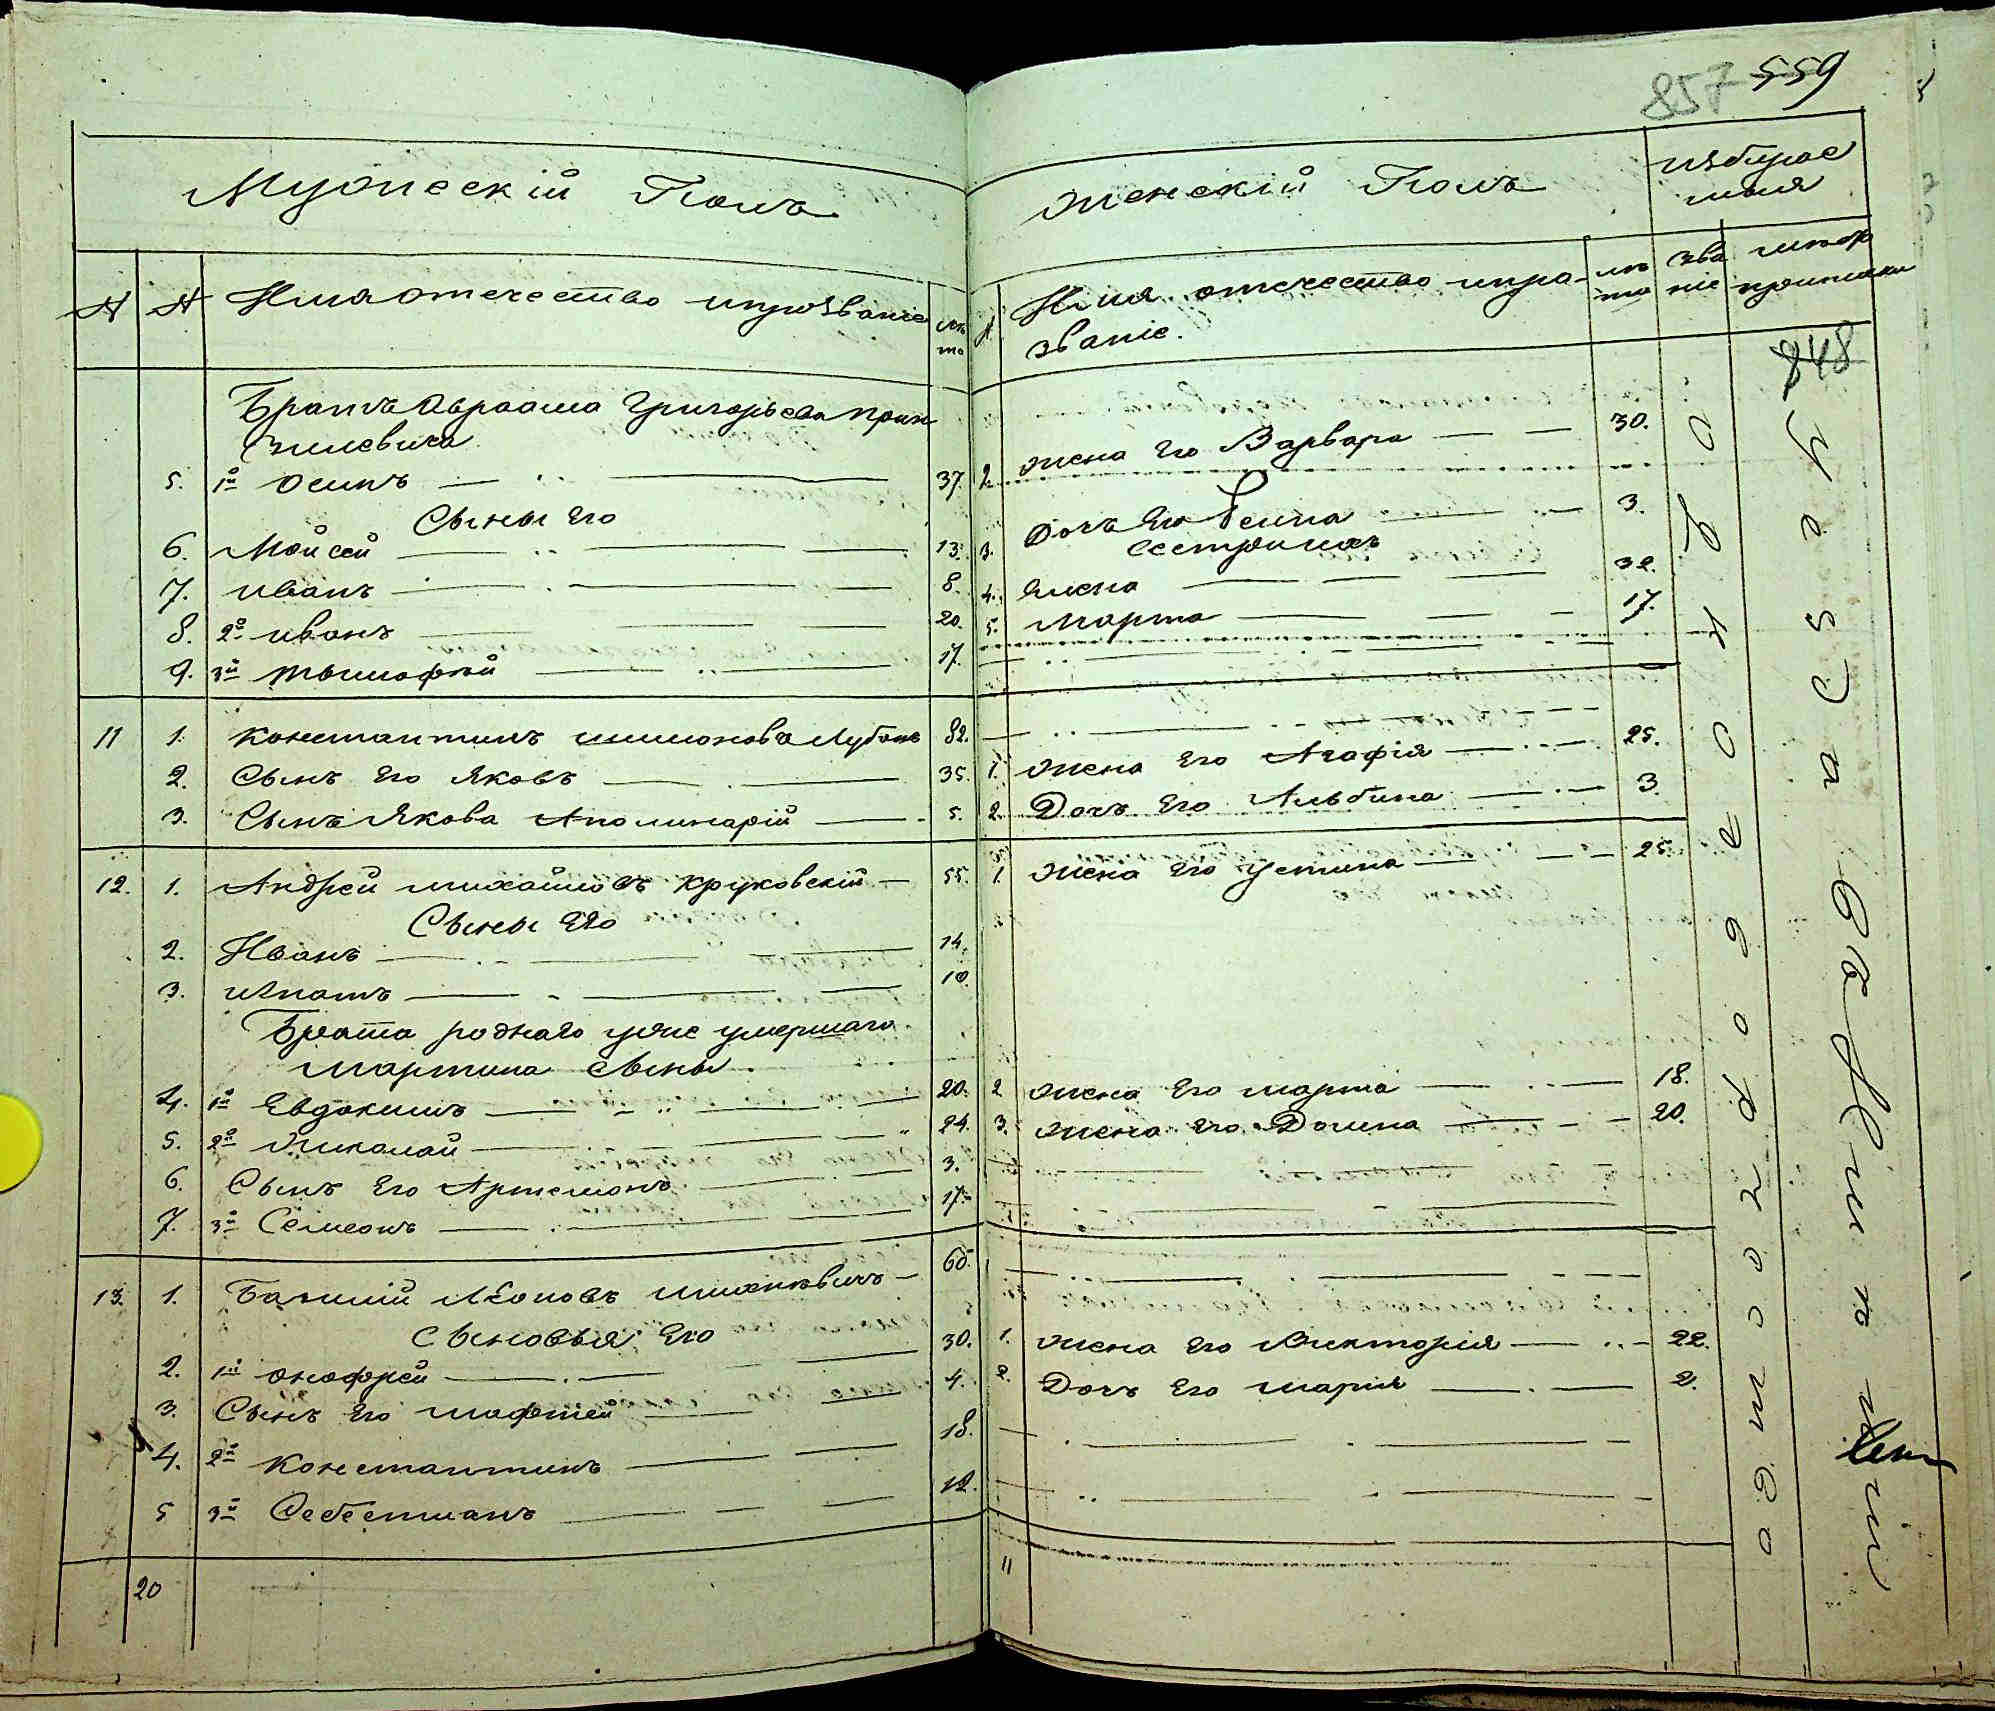 857 559
Мужескій Полъ
№ № Имя отечество ипрозваніе лѣ
та
Братъ Авраама Григорьева
5. 1й Осипъ 37.
Сыны Его
6. Мойсей 13.
7. иванъ 8.
8. 2й иванъ 20.
9. 3й тымофѣй 17.
11 1. Константинъ шимонова 82.
2. Сынъ Его Яковъ 35.
3. Сынъ Якова Аполинарій 5.
12. 1. Андрей михайловъ Круковскій 55.
Сыны Его
2. Иванъ 14.
3. игнатъ 10.
Брата роднаго уже умершаго
мартина сыны
4. 1й Евдокимъ 20.
5. 2й николай 24.
6. Сынъ Его Артемонъ 3.
7. 3й Семеонъ 17.
13. 1. Базилій Леоновъ 60.
Сыновья Его
2. 1й онофрей 30.
3. Сынъ Его матфей 4.
4. 2й Константинъ 18.
5 3й Себестианъ 12.
20
Женскій Полъ
избирае
мыя
№ Имя отечество ипро-
званіе.
лѣ
та
зва
ніе
приписки
848
2. жена Его Варвара 30.
3. Дочъ Его 3.
сестры ихъ
4. Елена 32.
5. марта 17.
1. жена Его Агафія 25.
2. Дочъ Его Альбина 3.
1. жена Его устина 25.
2 жена Его марта 18.
3. жена Его Домна 20.
1. жена Его Викторія 22.
2. Дочъ Его марія 2.
11
уезда